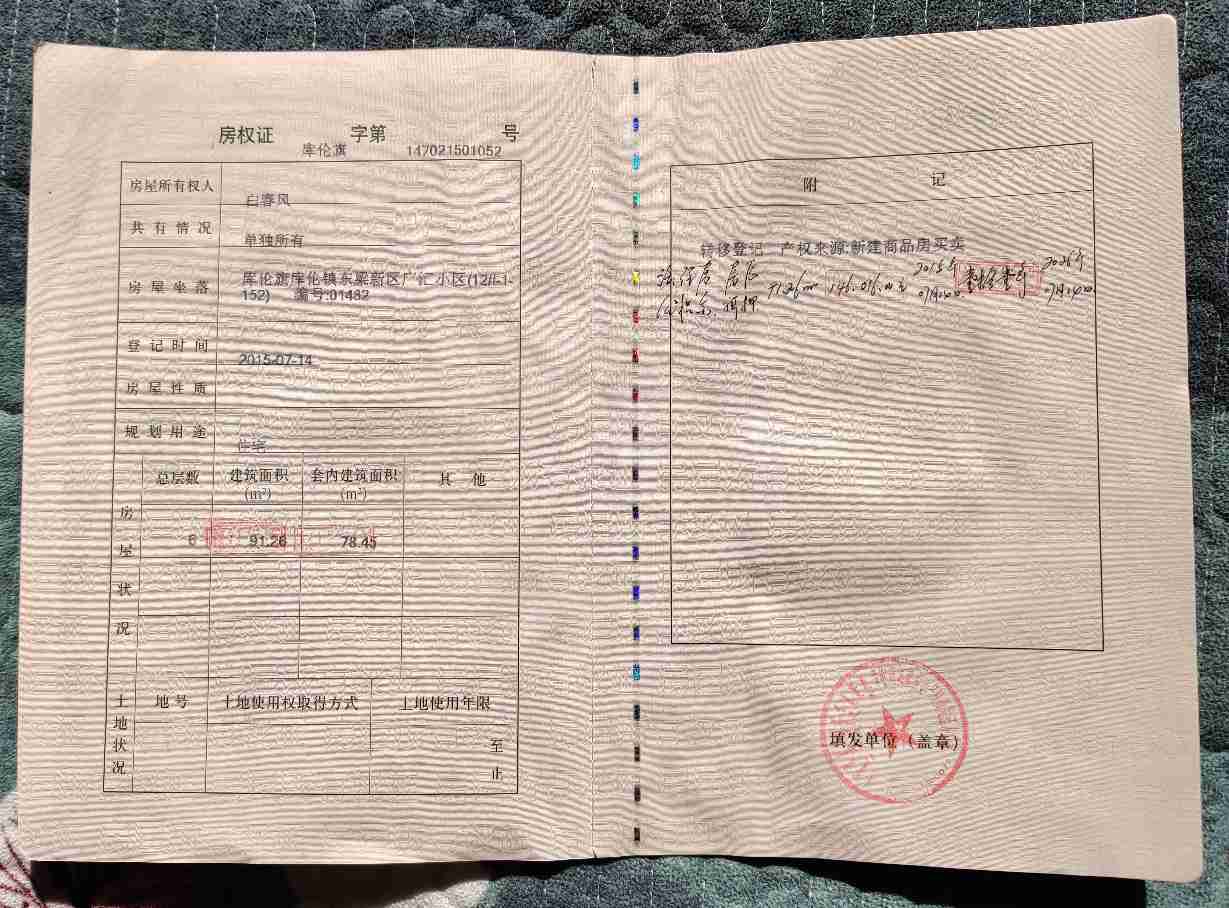 房权证 字第 号
库伦旗 147021501052
房屋所有权人 白春风
共有情况 单独所有
房屋坐落 库伦旗库伦镇东梁新区广汇小区(12#-1-
152) 编号:01482
登记时间 2015-07-14
房屋性质
规划用途 住宅
房屋状况
总层数 建筑面积 套内建筑面积 其他
(m²) (m²)
6 91.26 78.45
土地状况
地号 土地使用权取得方式 土地使用年限
至
止
附 记
转移登记 产权来源:新建商品房买卖
2015年 2026年
146.016.00元
抵押
填发单位(盖章)